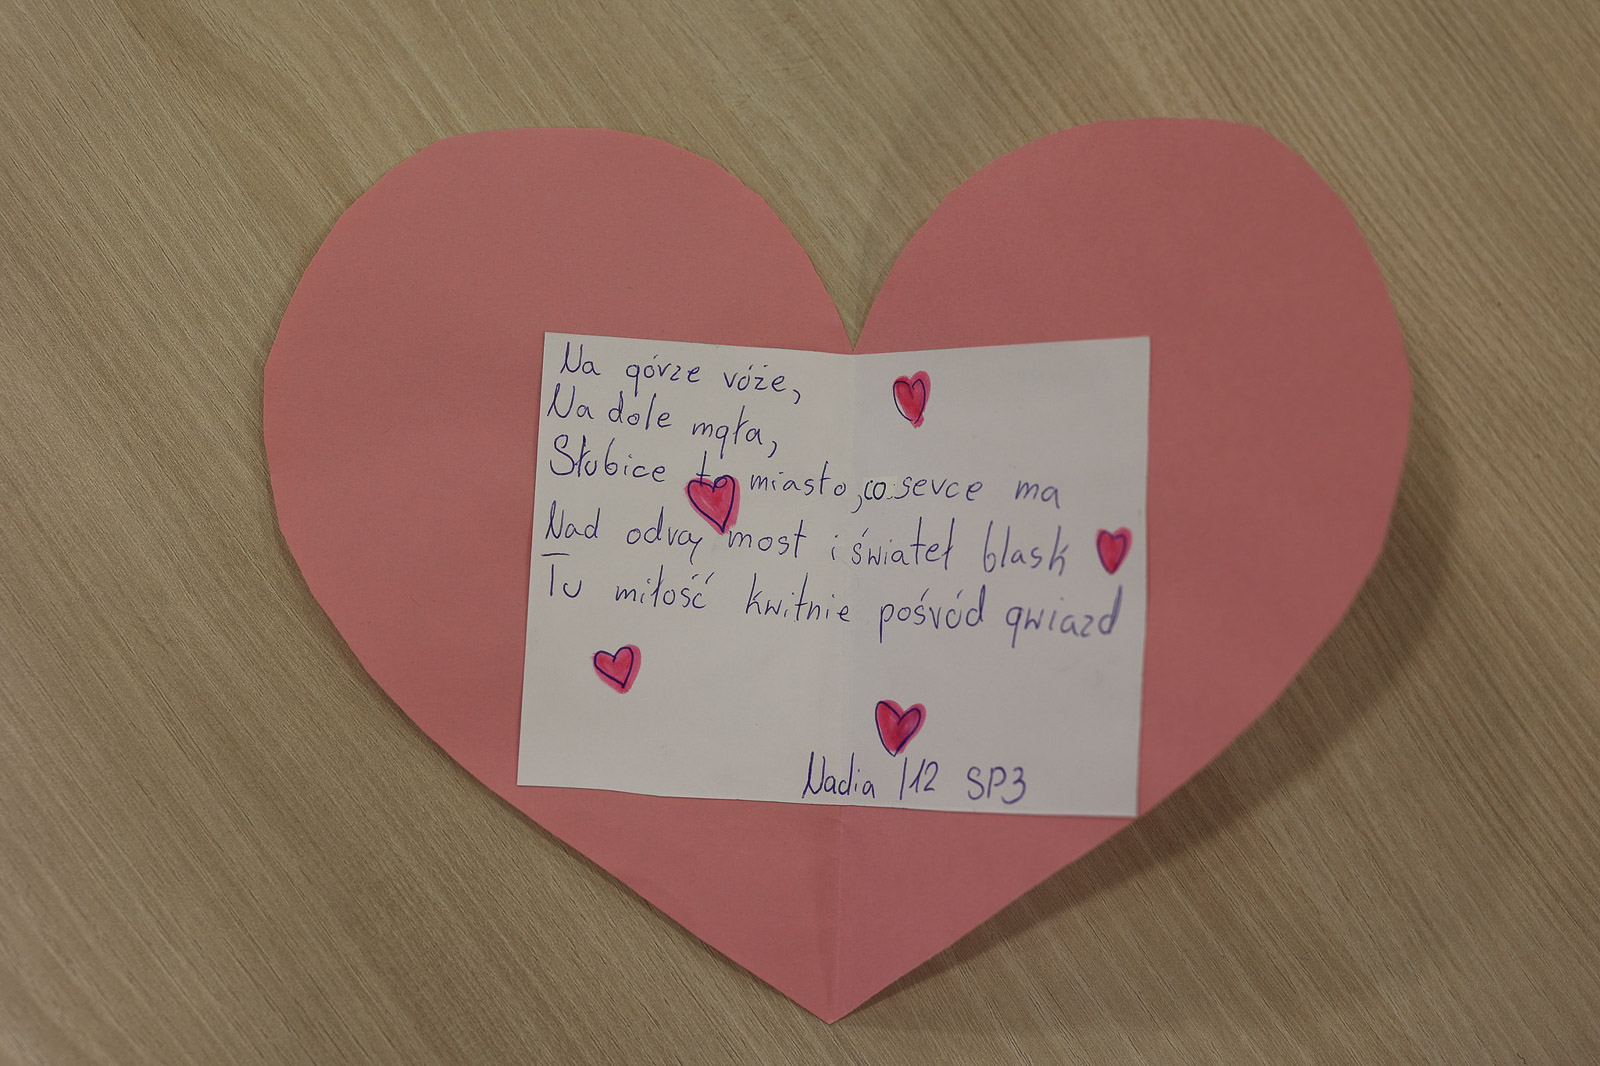 Na górze róże,
Na dole mgła,
Słubice to miasto, co serce ma
Nad odrą most i świateł blask
Tu miłość kwitnie pośród gwiazd
Nadia 12 SP3